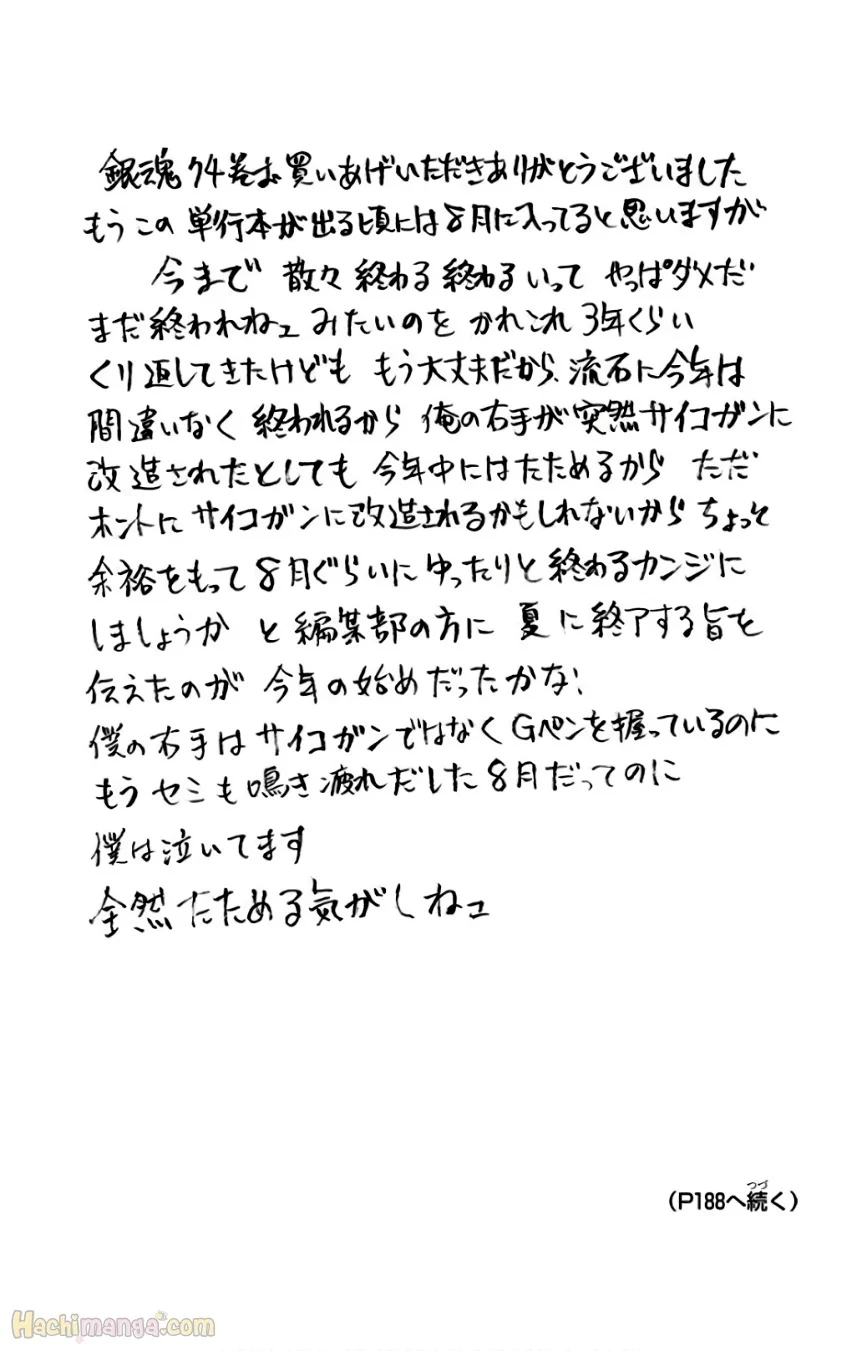 銀魂74巻お買いあげいただきありがとうございました
もうこの単行本が出る頃には8月に入ってると思いますが
今まで 散々終わる終わるいって やっぱダメだ
まだ終われねェ みたいのを かれこれ3年くらい
くり返してきたけども もう大丈夫だから、流石に今年は
間違いなく 終われるから 俺の右手が突然サイコガンに
改造されたとしても 今年中にはたためるから ただ
ホントにサイコガンに改造されるかもしれないから ちょっと
余裕をもって8月ぐらいに ゆったりと終わるカンジに
しましょうか と編集部の方に 夏に終了する旨を
伝えたのが 今年の始めだったかな、
僕の右手はサイコガンではなくGペンを握っているのに
もう セミも鳴き疲れだした8月だってのに
僕は泣いてます
全然たためる気がしねェ
(P188へ続く)
つづ
Hachimanga.com